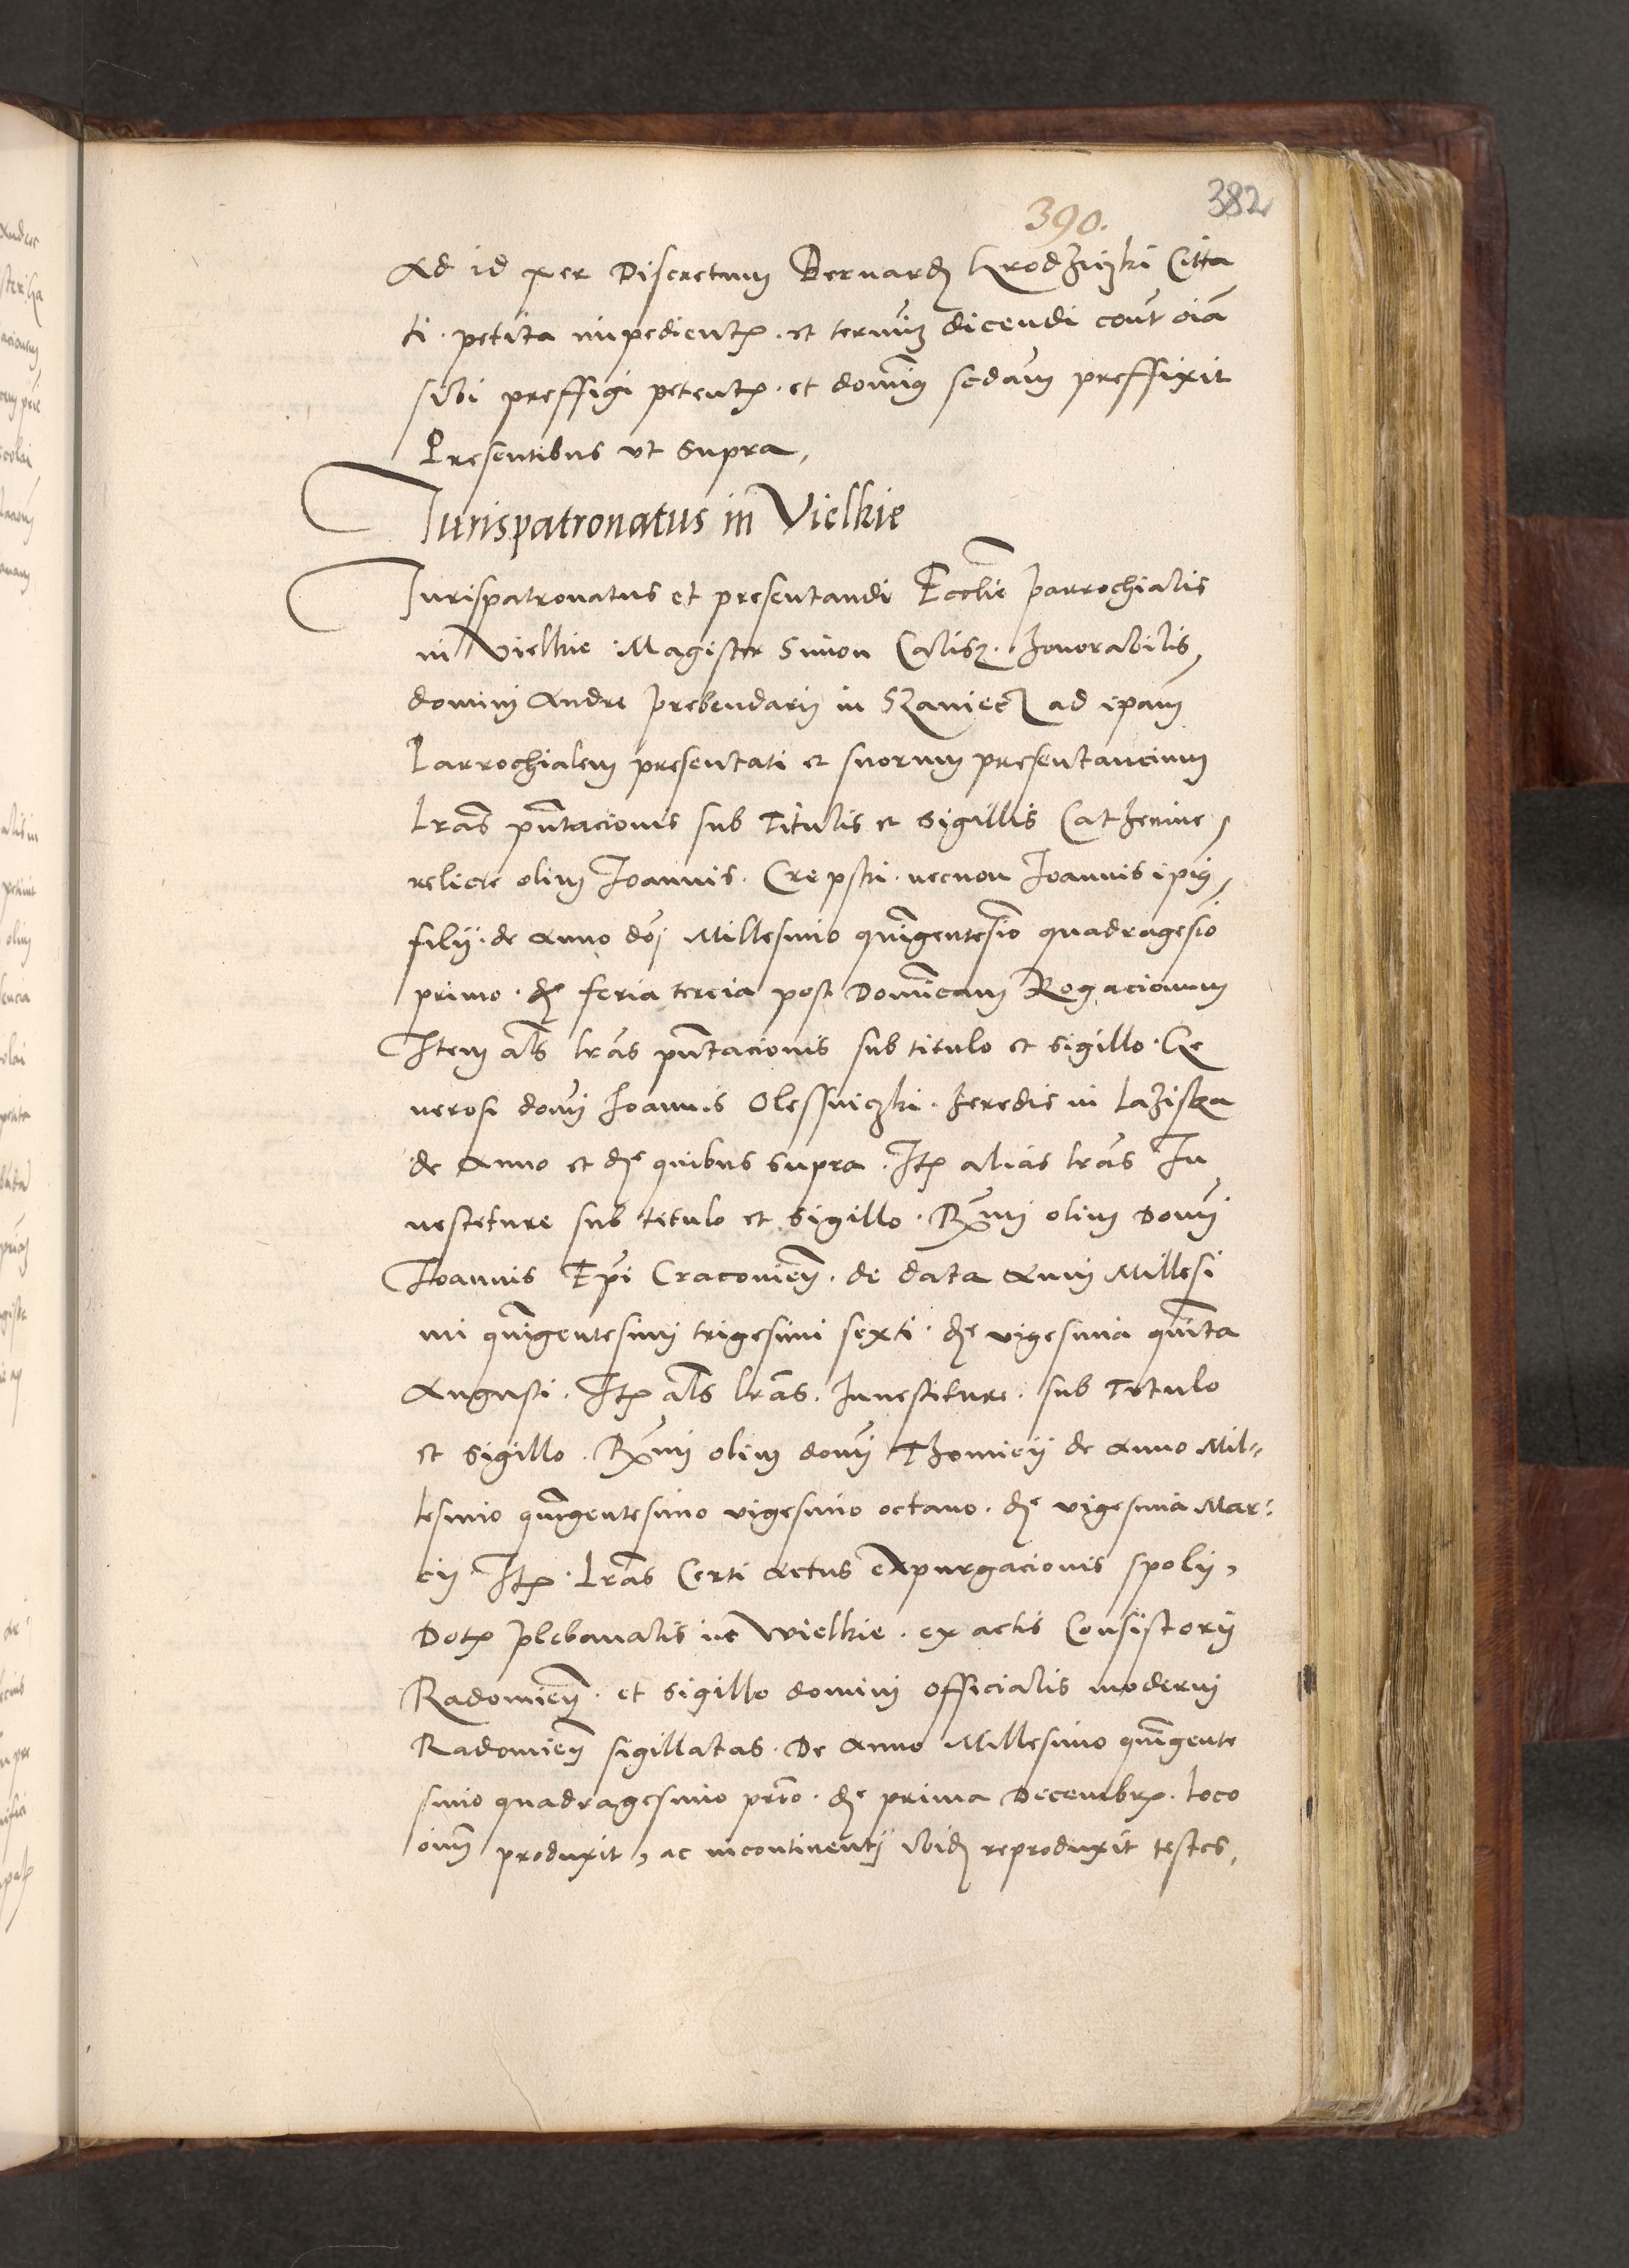 382
390.
Ad id per Discretum Bernardũ Grodziczki Citta
ti petita impedientẽ. et termiũ dicendi contr oĩa
sibi preffigi petentẽ. et domĩꝯ sedam̃ preffixit
Presentibus vt supra,
Jurispatronatus in Vielkie
Jurispatronatus et presentandi Eccl̃ie parrochialis
in Vielkie Magister Simon Calisz. honorabilis
domini Andre prebendarij in Szaniecz ad ip̃am
Parrochialem presentati et suorum presentancium
Lr̃as pñtacionis sub Titulis et Sigillis Catherine
relicte olim Joannis. Crepski. necnon Joannis ip̃iꝯ
filij. de Anno dñi Millesimo qũigentesĩo quadragesĩo
primo. die feria tercia post Domĩcam Rogacionum
Item al̃s lr̃as pñtacionis sub titulo et sigillo. Ge
nerosi domĩ Joannis Olessniczki. heredis in Laziska
de Anno et die quibus supra. Itẽ alias lr̃as In
uestiture sub titulo et sigillo. Rx̃mi olim Domĩ
Joannis Ep̃i Cracouieñ. de data Anni Millesi
mi qũigentesimi trigesimi sexti. die vigesima qũita
Augusti. Itẽ al̃s lr̃as. Inuestiture. sub Titulo
et sigillo. Rx̃mi olim domĩ Thomicij de Anno Mil=
lesimo qũigentesimo vigesimo octauo. die vigesima Mar=
cij Itẽ. Lr̃as Certi Actus expurgacionis spolij,
Dotẽ plebanalis in Wielkie. ex actis Consistorij
Radomieñ. et sigillo domini officialis moderni
Radomieñ sigillatas. De Anno Millesimo qũigente
simo quadragesimo prĩo. die prima Decembrẽ. loco
oĩm produxit, ac incontinentij ibidẽ reproduxit testes,